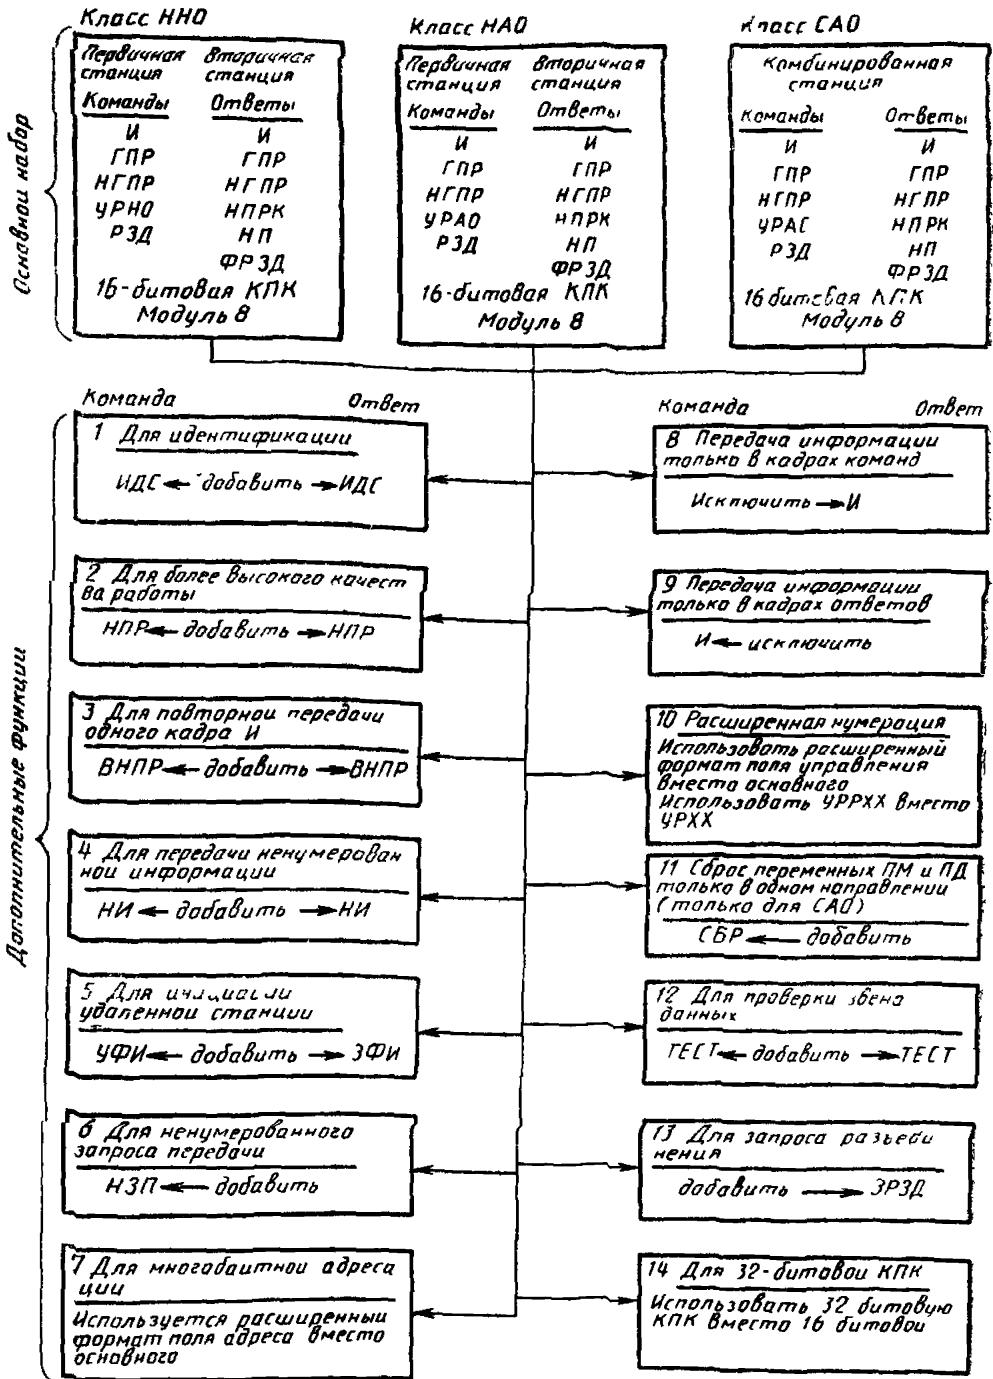 Класс ННО
Первичная Вторичная
станция станция
Команды Ответы
И И
ГПР ГПР
НГПР НГПР
УРНО НПРК
РЗД НП
ФРЗД
16-битовая КПК
Модуль 8
Класс НАО
Первичная Вторичная
станция станция
Команды Ответы
И И
ГПР ГПР
НГПР НГПР
УРАО НПРК
РЗД НП
ФРЗД
16-битовая КПК
Модуль 8
Класс САО
Комбинированная
станция
Команды Ответы
И И
ГПР ГПР
НГПР НГПР
УРАС НПРК
РЗД НП
ФРЗД
16 битовая КПК
Модуль 8
Основной набор
Дополнительные функции
Команда Ответ
1 Для идентификации
ИДС добавить ИДС
2 Для более высокого качест
ва работы
НПР добавить НПР
3 Для повторной передачи
одного кадра И
ВНПР добавить ВНПР
4 Для передачи ненумерован
ной информации
НИ добавить НИ
5 Для инициации
удаленной станции
УФИ добавить ЗФИ
6 Для ненумерованного
запроса передачи
НЗП добавить
7 Для многобаитной адреса
ции
Используется расширенный
формат поля адреса вместо
основного
Команда Ответ
8 Передача информации
только в кадрах команд
Исключить И
9 Передача информации
только в кадрах ответов
И исключить
10 Расширенная нумерация
Использовать расширенный
формат поля управления
вместо основного
Использовать УРРХХ вместо
УРХХ
11 Сброс переменных ПМ и ПД
только в одном направлении
(только для САО)
СБР добавить
12 Для проверки звена
данных
ТЕСТ добавить ТЕСТ
13 Для запроса разъеди
нения
добавить ЗРЗД
14 Для 32-битовой КПК
Использовать 32 битовую
КПК вместо 16 битовой